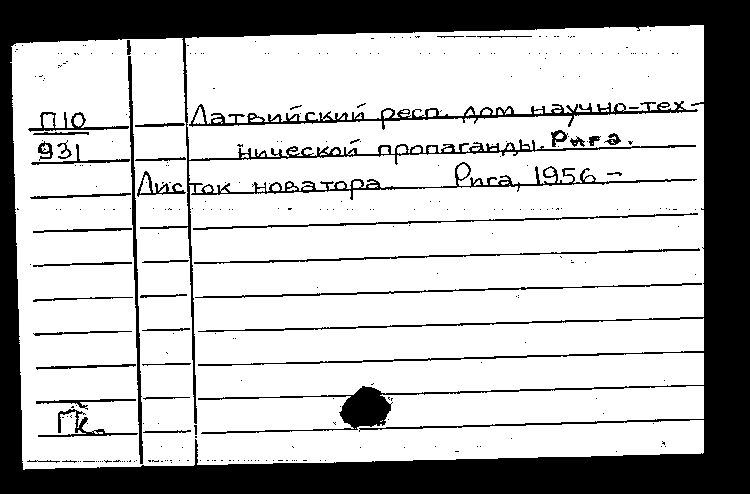 П10 Латвийский респ. дом научно-тех-
931 нической пропаганды. Рига.
Листок новатора Рига, 1956 -
ГК.